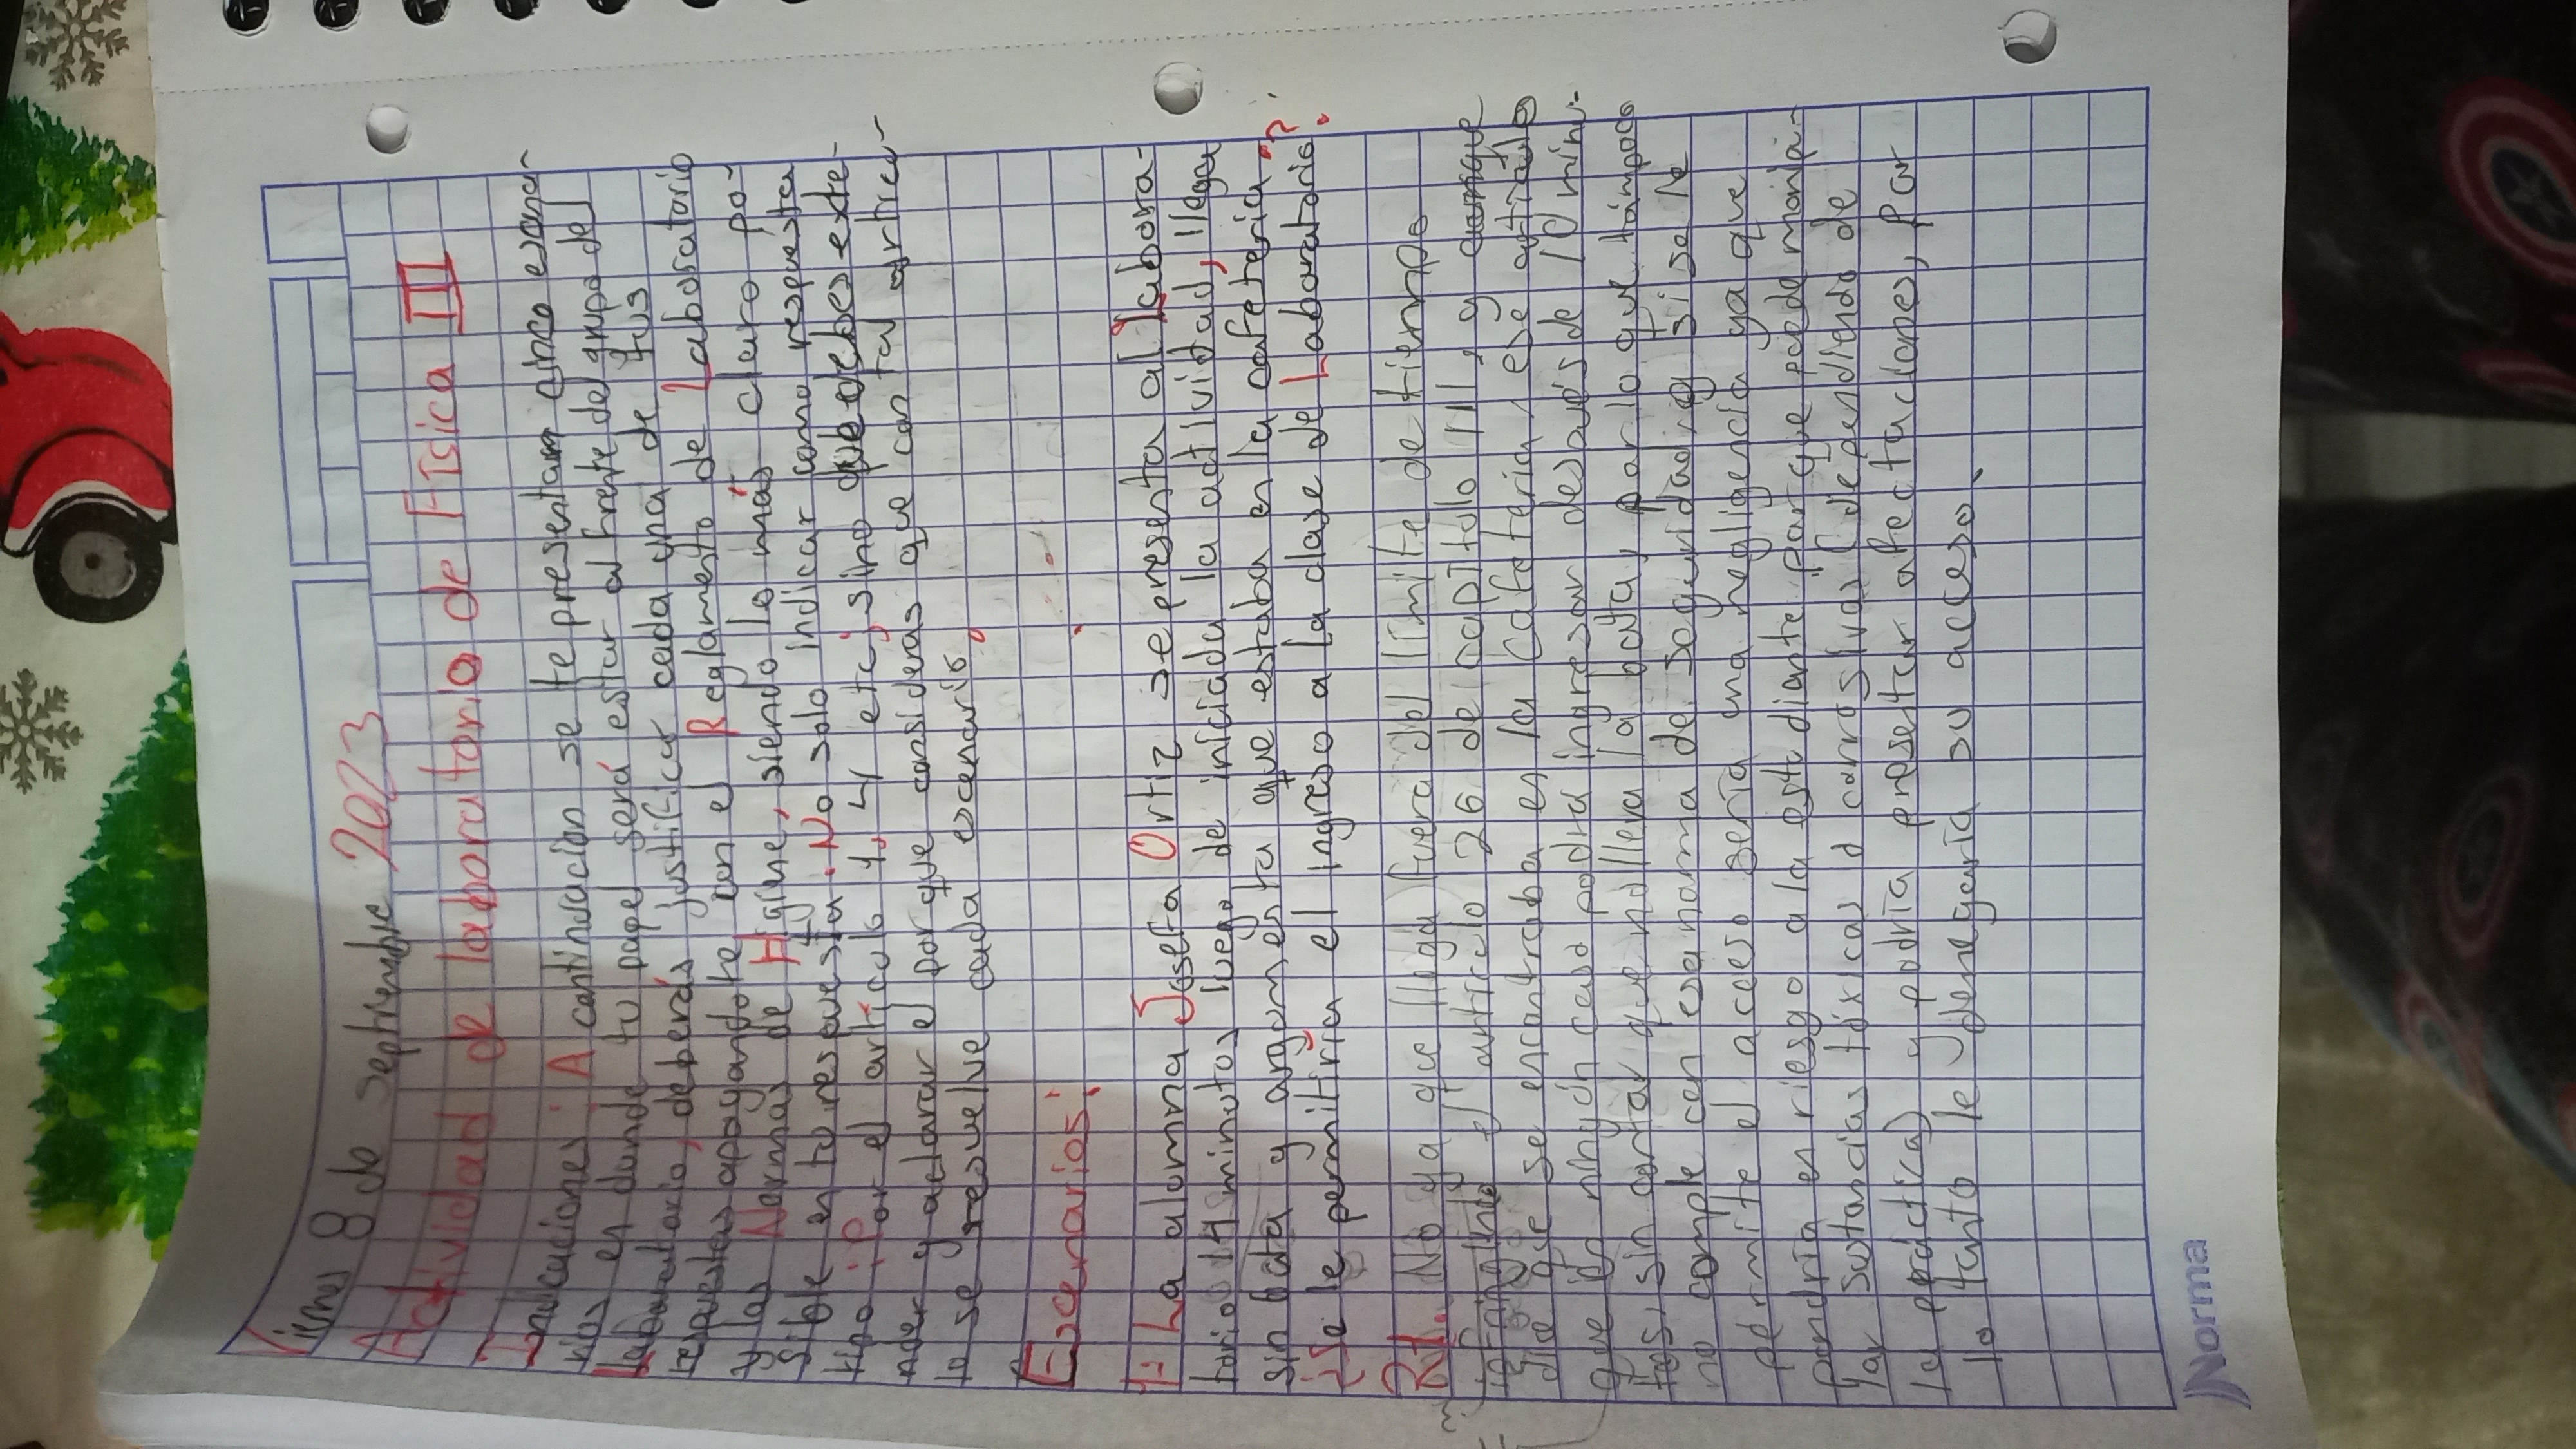 Viernes 8 de septiembre 2023
Actividad de laboratorio de Física III
Indicaciones: A continuación se te presentan cinco escena-
rios en donde tu papel será estar al frente del grupo del
laboratorio, deberás justificar cada una de tus
respuestas apoyandote con el Reglamento de Laboratorio
y las Normas de Higine, siendo lo más claro po-
sible en tu respuesta. No solo indicar como respuesta
tipo: Por el artículo 1, 4 etc; sino que debes exte-
nder y aclarar el por que consideras que con tal artícu-
lo se resuelve cada escenario.
Escenarios:
1.- La alumna Josefa Ortiz se presenta al labora-
torio 14 minutos luego de iniciada la actividad, llega
sin bata y argumenta que estaba en la cafeteria.
¿Se le permitiría el ingreso a la clase de Laboratorio?
R1. No ya que llega fuera del límite de tiempo
infringiendo el artículo 26 del capítulo III, y aunque
dice que se encontraba en la cafeteria, ese artículo
que en ningún caso podrá ingresar después de 10 minu-
tos, sin contar que no lleva la bata, por lo que tampoco
no cumple con esa norma de seguridad, y si se le
permite el acceso sería una negligencia ya que
pondría en riesgo a la estudiante porque puede manipu-
lar sustancias tóxicas o corrosivas (dependiendo de
la práctica) y podría presentar afectaciones, por
lo tanto le denegaría su acceso.
Norma